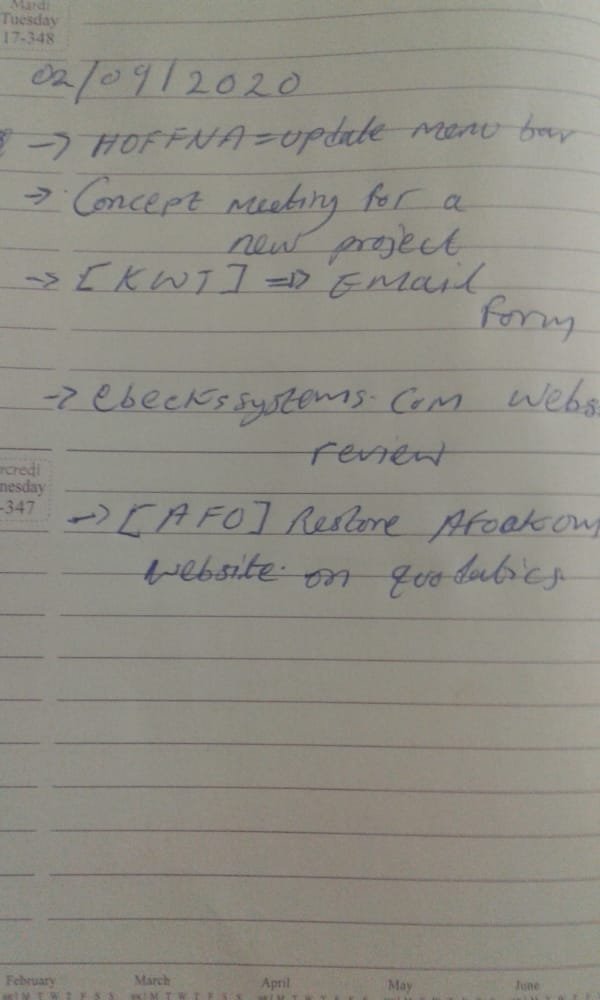 Mardi
Tuesday
17-348
02/09/2020
→ HOFFNA = update menu bar
→ Concept meeting for a
new project
→ [KWT] ⇒ Email
Form
→ ebeckssystems.com webs
review
rcredi
nesday
-347
→ [AFO] Restore
website on
February March April May June